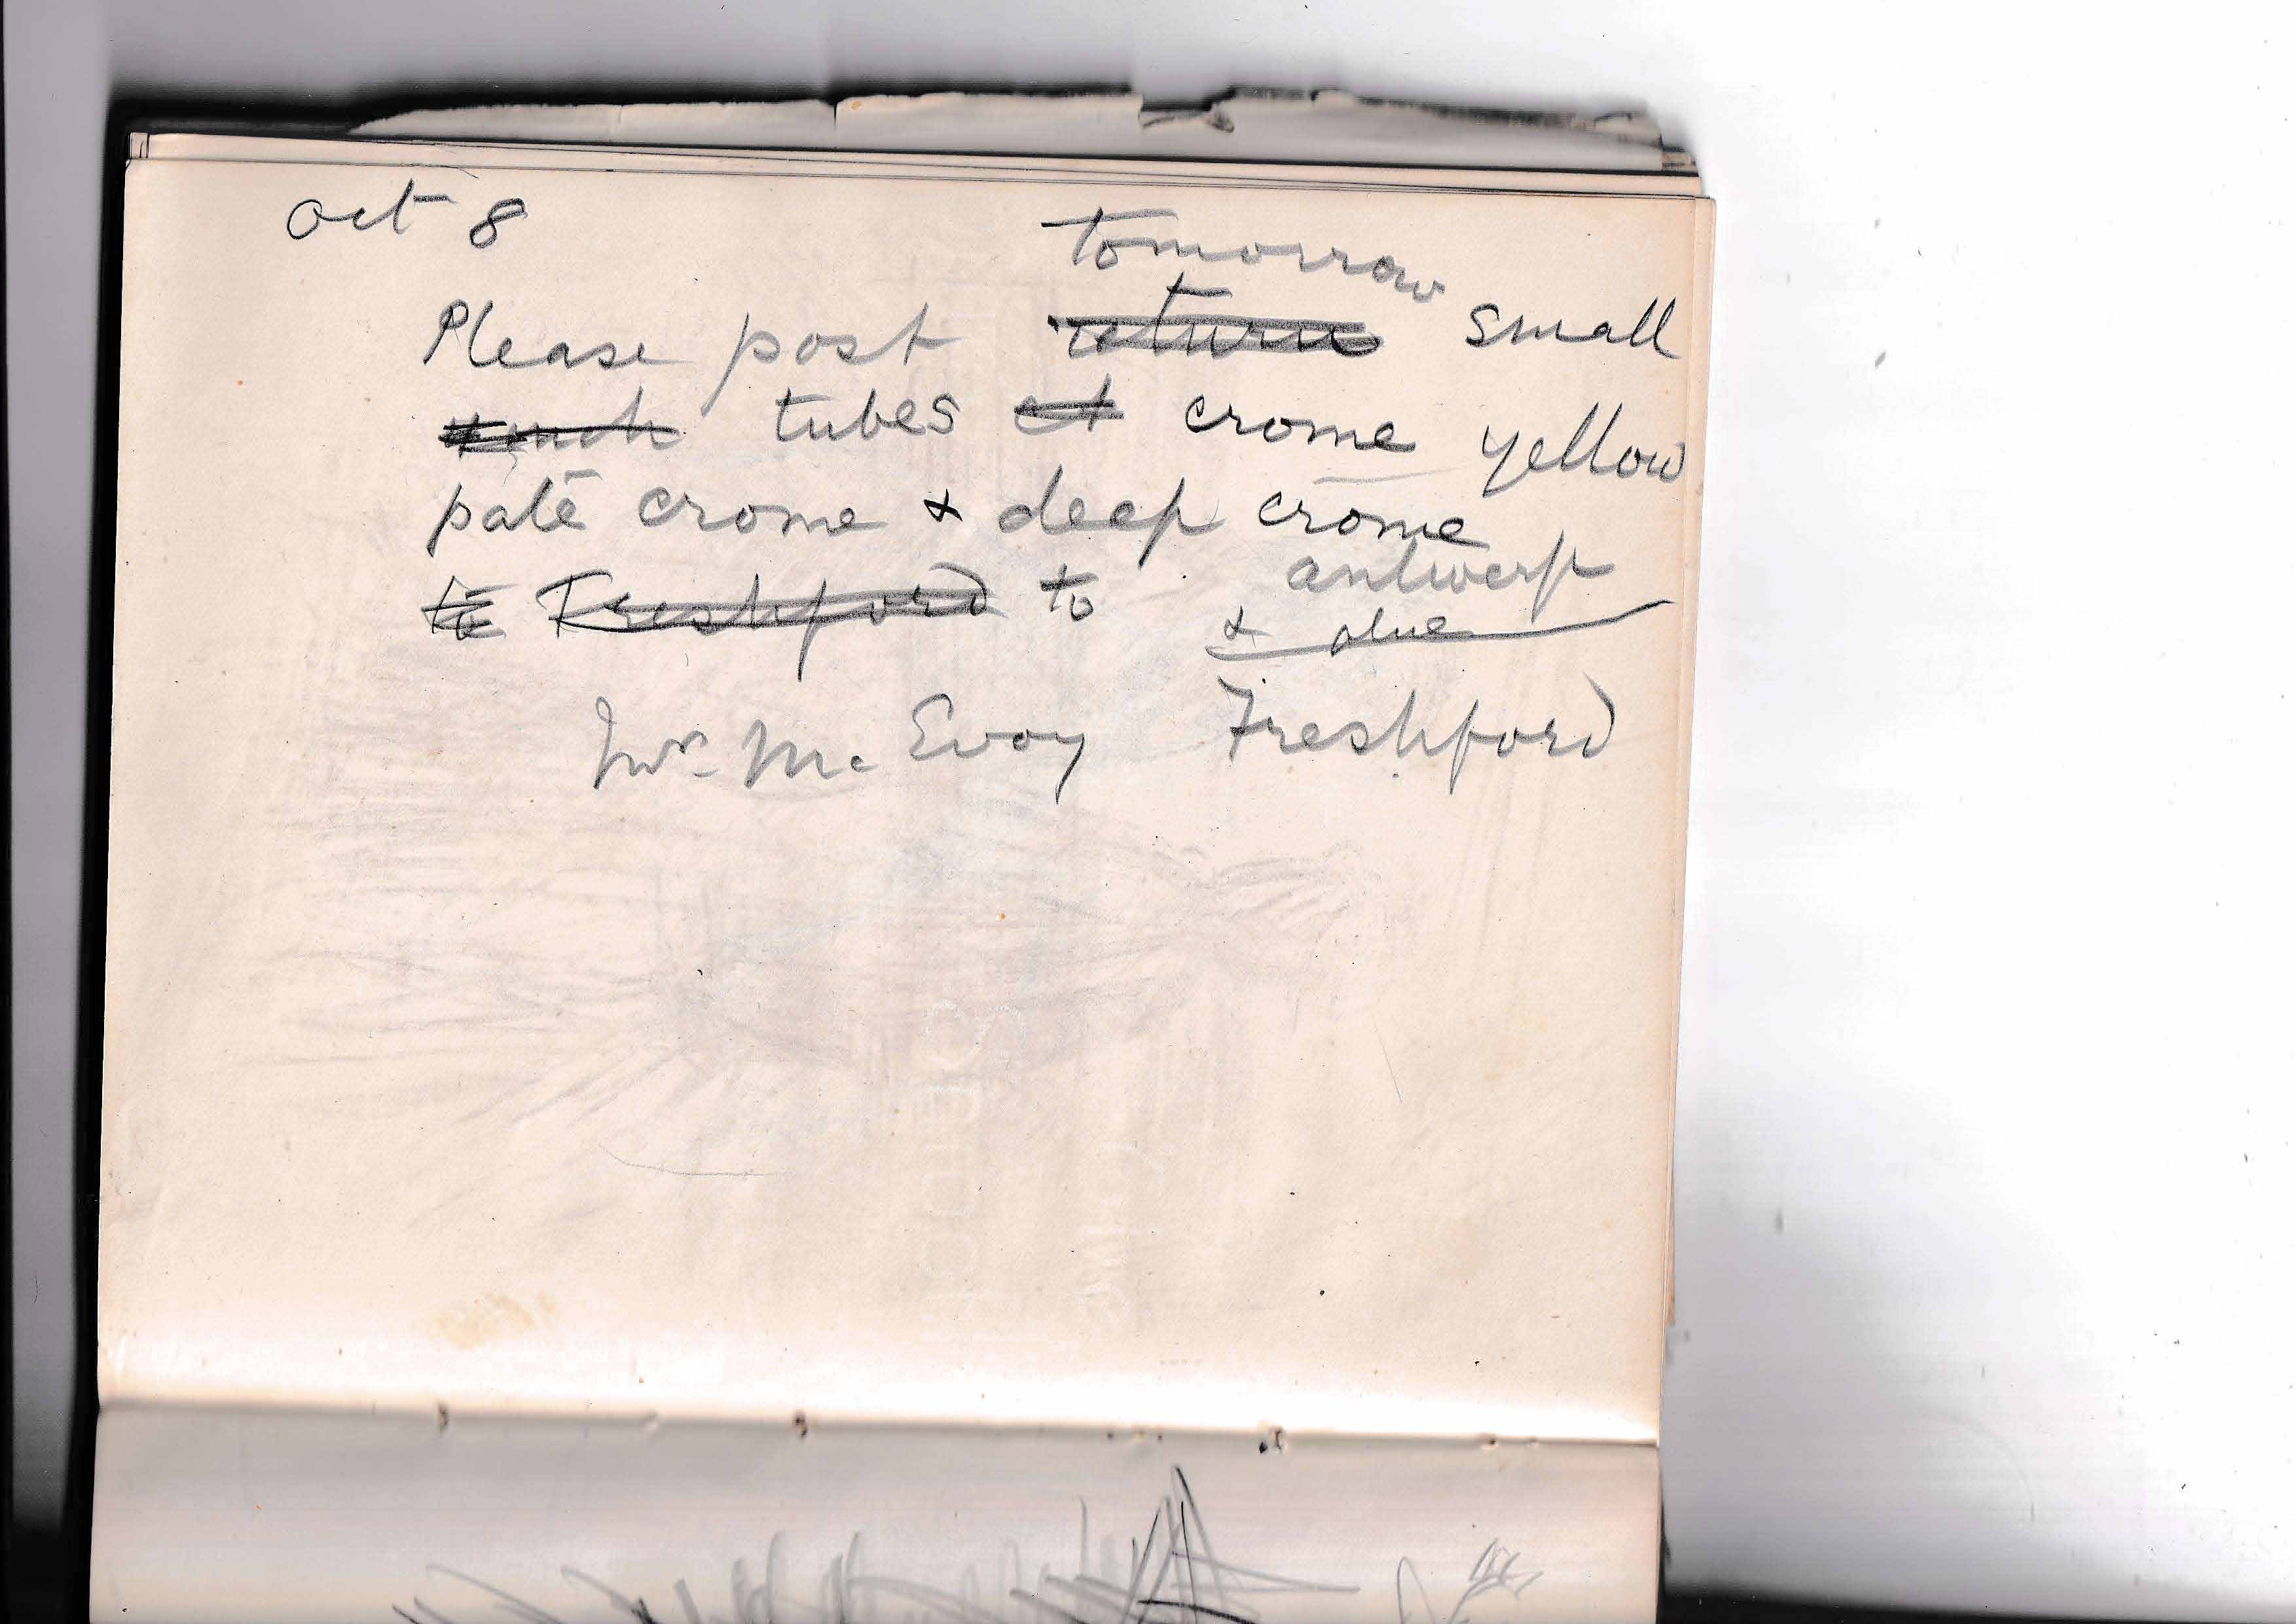 Oct 8
tomorrow
Please post return small
tubes crome yellow
pale crome & deep crome
to Freshford to antwerp
& blue
Mrs Mc Evoy Freshford